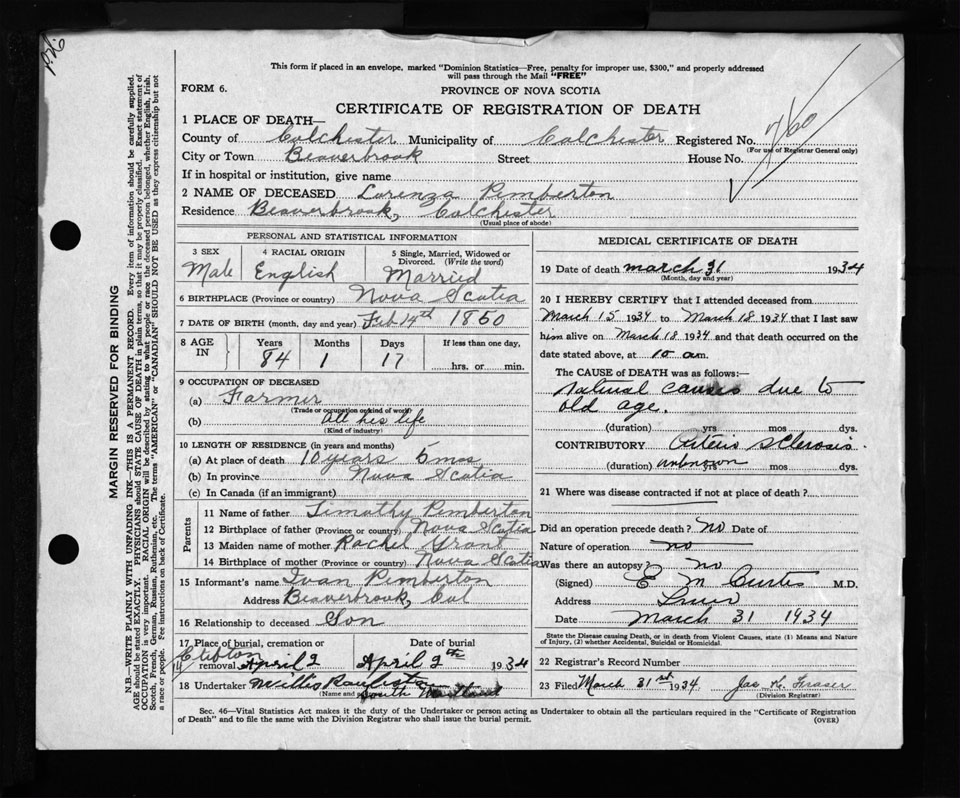 This form if placed in an envelope, marked "Dominion Statistics—Free, penalty for improper use, $300," and properly addressed
will pass through the Mail "FREE"
FORM 6.
PROVINCE OF NOVA SCOTIA
CERTIFICATE OF REGISTRATION OF DEATH
1 PLACE OF DEATH—
County of Colchester Municipality of Colchester Registered No. 760
(For use of Registrar General only)
City or Town Beaverbrook Street House No.
If in hospital or institution, give name
2 NAME OF DECEASED Lorenza Pemberton
Residence Beaverbrook, Colchester
(Usual place of abode)
PERSONAL AND STATISTICAL INFORMATION
3 SEX 4 RACIAL ORIGIN 5 Single, Married, Widowed or
Divorced. (Write the word)
Male English Married
6 BIRTHPLACE (Province or country) Nova Scotia
7 DATE OF BIRTH (month, day and year) Feb 14th 1850
8 AGE IN Years Months Days If less than one day,
84 1 17 hrs. or min.
9 OCCUPATION OF DECEASED
(a) Farmer
(Trade or occupation or kind of work)
(b) all his life
(Kind of industry)
10 LENGTH OF RESIDENCE (in years and months)
(a) At place of death 10 years 5 mos
(b) In province Nova Scotia
(c) In Canada (if an immigrant)
Parents
11 Name of father Timathy Pemberton
12 Birthplace of father (Province or country) Nova Scotia
13 Maiden name of mother Rachel Grant
14 Birthplace of mother (Province or country) Nova Scotia
15 Informant's name Ivan Pemberton
Address Beaverbrook, Col
16 Relationship to deceased Son
17 Place of burial, cremation or Date of burial
Clifton
removal April 2 April 2th 1934
18 Undertaker Willis
Name and South Maitland
MEDICAL CERTIFICATE OF DEATH
19 Date of death March 31 1934
(Month, day and year)
20 I HEREBY CERTIFY that I attended deceased from
March 15 1934 to March 18 1934 that I last saw
him alive on March 18 1934 and that death occurred on the
date stated above, at 10 am.
The CAUSE OF DEATH was as follows:—
Natural causes due to
old age.
(duration) yrs mos dys.
CONTRIBUTORY Arterio sclerosis
(duration) unknown mos dys.
21 Where was disease contracted if not at place of death?
Did an operation precede death? No Date of
Nature of operation no
Was there an autopsy? no
(Signed) E M Curtis M.D.
Address Truro
Date March 31 1934
State the Disease causing Death, or in Death from Violent Causes, state (1) Means and Nature
of Injury, (2) whether Accidental, Suicidal or Homicidal.
22 Registrar's Record Number
23 Filed March 31st 1934 Jas. K. Fraser
(Division Registrar)
Sec. 46—Vital Statistics Act makes it the duty of the Undertaker or person acting as Undertaker to obtain all the particulars required in the "Certificate of Registration
of Death" and to file the same with the Division Registrar who shall issue the burial permit.
(OVER)
MARGIN RESERVED FOR BINDING
N.B.—WRITE PLAINLY WITH UNFADING INK—THIS IS A PERMANENT RECORD. Every item of information should be carefully supplied.
AGE should be stated EXACTLY. PHYSICIANS should STATE CAUSE OF DEATH in plain terms, so that it may be properly classified. Exact statement of
OCCUPATION is very important. RACIAL ORIGIN will be described by stating to what people or race the deceased person belonged, whether English, Irish,
Scotch, French, German, Russian, Ruthenian, etc. The terms "AMERICAN" or "CANADIAN" SHOULD NOT BE USED as they express citizenship but not
a race or people. Fee instructions on back of Certificate.